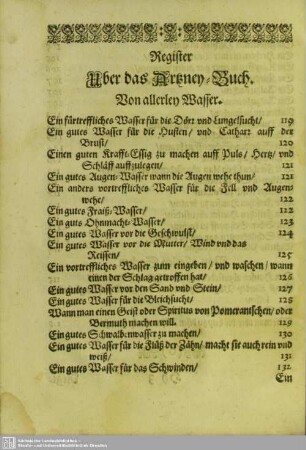 Register
Uber das Artzney-Buch.
Von allerley Wasser.
Ein fürtreffliches Wasser für die Dörr vnd Lungelsucht/ 119
Ein gutes Wasser für die Husten/ vnd Catharr auff der
Brust/ 120
Einen guten Krafft-Essig zu machen auff Puls/ Hertz/ vnd
Schläff auffzulegen/ 121
Ein gutes Augen-Wasser wann die Augen wehe thun/ 121
Ein anders vortreffliches Wasser für die Fell vnd Augen-
wehe/ 122
Ein gutes Fraiß-Wasser/ 122
Ein guts Ohnmacht-Wasser/ 123
Ein gutes Wasser vor die Geschwulst/ 124
Ein gutes Wasser vor die Mutter/ Wind vnd das
Reissen/ 125
Ein vortreffliches Wasser zum eingeben/ vnd waschen/ wann
einen der Schlag getroffen hat/ 126
Ein gutes Wasser vor den Sand vnd Stein/ 127
Ein gutes Wasser für die Bleichsucht/ 128
Wann man einen Geist oder Spiritus von Pomerantschen/ oder
Wermuth machen will. 129
Ein gutes Schwalbenwasser zu machen/ 130
Ein gutes Wasser für die Flüß der Zähn/ macht sie auch rein vnd
weiß/ 131
Ein gutes Wasser für das Schwinden/ 132
Ein